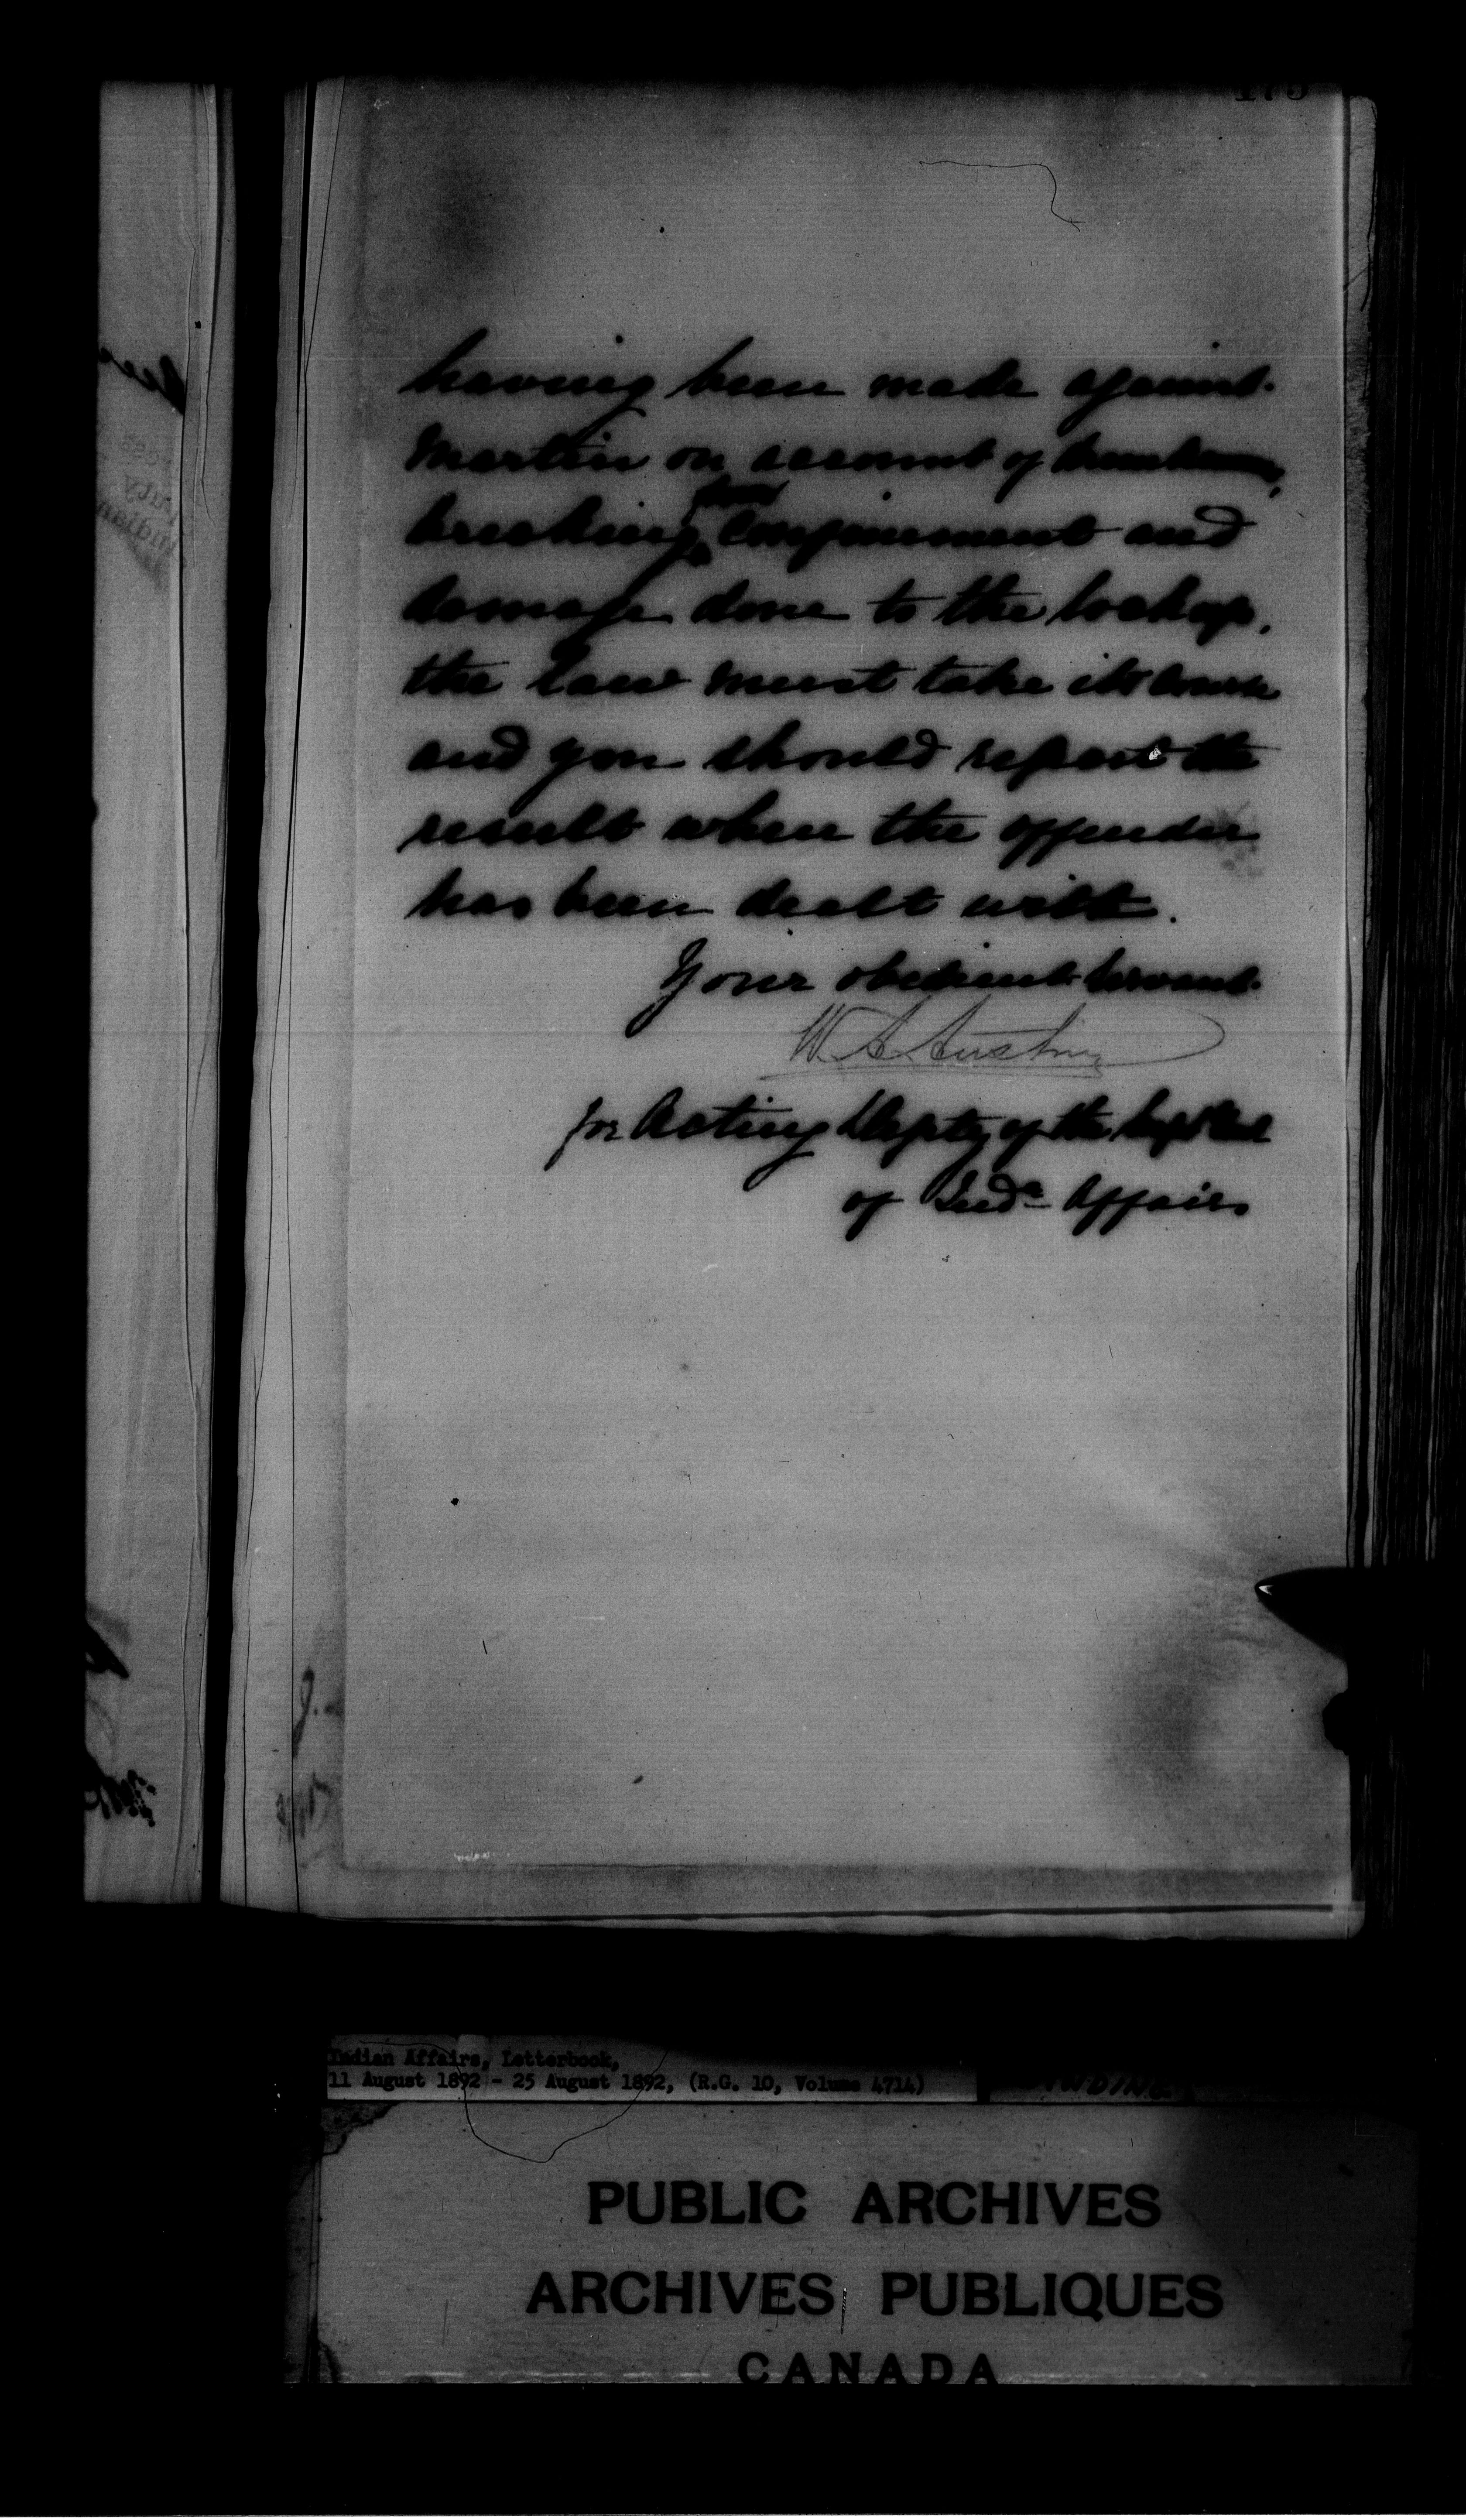 having been made against
Martin on account of drunkenness,
breaking from confinement and
damage done to the lockup,
the law must take its course
and you should report the
result when the offender
has been dealt with.
Your obedient servant
W. A. Austin
for Acting Deputy of the Supt Genl
of Indn Affairs
Indian Affairs, Letterbook,
11 August 1892 - 25 August 1892, (R.G. 10, Volume 4714)
PUBLIC ARCHIVES
ARCHIVES PUBLIQUES
CANADA